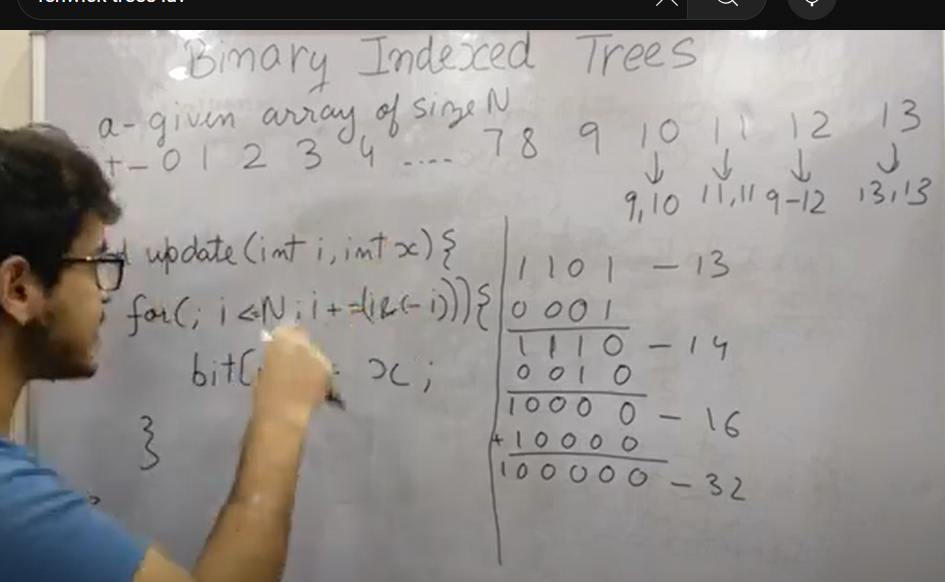 Binary Indexed Trees
a- given array of size N
0 1 2 3 4 .... 7 8 9 10 11 12 13
↓ ↓ ↓ ↓
9,10 11,11 9-12 13,13
update(int i, int x){
for(; i<=N; i+=(i&(-i))){
bit[ x;
}
1101 - 13
0001
1110 - 14
0010
10000 - 16
+10000
100000 - 32